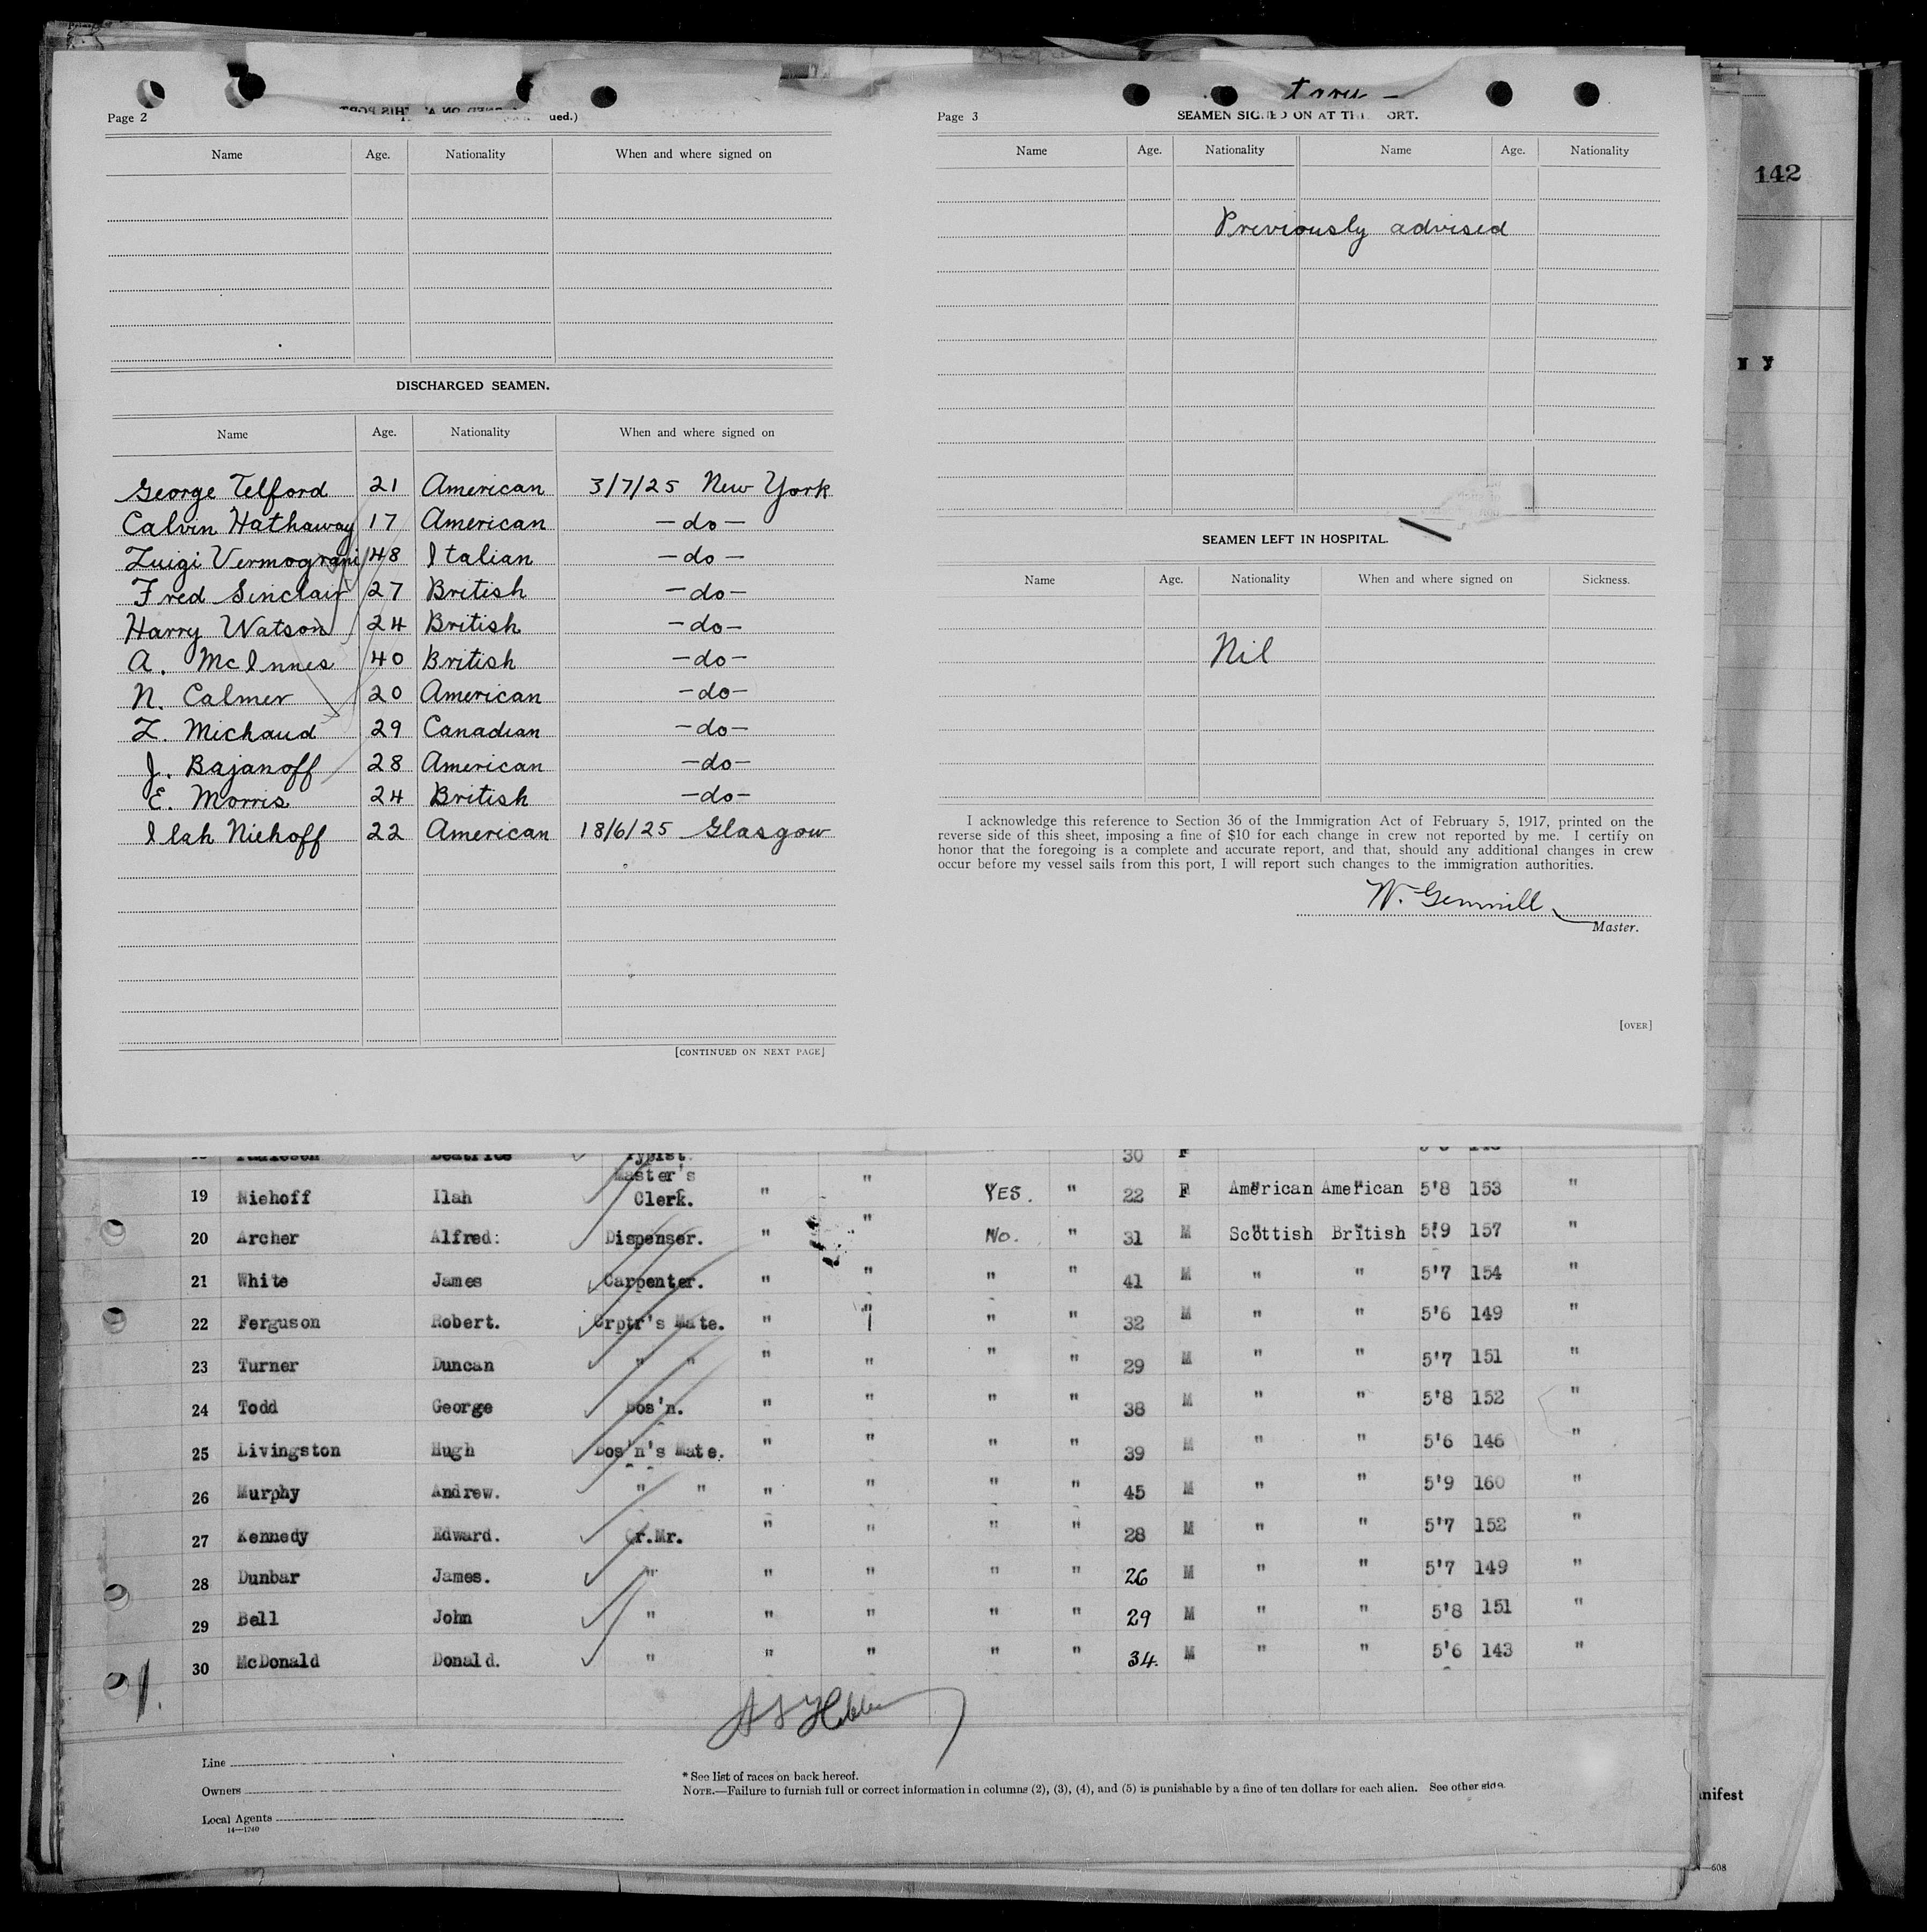 Page 2
ued.)
Name Age. Nationality When and where signed on
DISCHARGED SEAMEN.
Name Age. Nationality When and where signed on
George Telford 21 American 3/7/25 New York
Calvin Hathaway 17 American —do—
Luigi Vermograni 48 Italian —do—
Fred Sinclair 27 British —do—
Harry Watson 24 British —do—
A. McInnes 40 British —do—
N. Calmer 20 American —do—
L. Michaud 29 Canadian —do—
J. Bajanoff 28 American —do—
E. Morris 24 British —do—
Ilah Niehoff 22 American 18/6/25 Glasgow
[CONTINUED ON NEXT PAGE]
Page 3
SEAMEN SIGNED ON AT THI ORT.
Name Age. Nationality Name Age. Nationality
Previously advised
SEAMEN LEFT IN HOSPITAL.
Name Age. Nationality When and where signed on Sickness.
Nil
I acknowledge this reference to Section 36 of the Immigration Act of February 5, 1917, printed on the
reverse side of this sheet, imposing a fine of $10 for each change in crew not reported by me. I certify on
honor that the foregoing is a complete and accurate report, and that, should any additional changes in crew
occur before my vessel sails from this port, I will report such changes to the immigration authorities.
W. Gemmill
Master.
[OVER]
142
Beatrice Typist. 30 F
19 Niehoff Ilah Master's Clerk. " " YES. " 22 F American American 5'8 153 "
20 Archer Alfred: Dispenser. " " No. " 31 M Scottish British 5'9 157 "
21 White James Carpenter. " " " " 41 M " " 5'7 154 "
22 Ferguson Robert. Crptr's Mate. " " " " 32 M " " 5'6 149 "
23 Turner Duncan " " " " " " 29 M " " 5'7 151 "
24 Todd George Bos'n. " " " " 38 M " " 5'8 152 "
25 Livingston Hugh Bos'n's Mate. " " " " 39 M " " 5'6 146 "
26 Murphy Andrew. " " " " " " 45 M " " 5'9 160 "
27 Kennedy Edward. Qr.Mr. " " " " 28 M " " 5'7 152 "
28 Dunbar James. " " " " " 26 M " " 5'7 149 "
29 Bell John " " " " " 29 M " " 5'8 151 "
30 McDonald Donald. " " " " " 34. M " " 5'6 143 "
Line
Owners
Local Agents
14—1740
* See list of races on back hereof.
NOTE.—Failure to furnish full or correct information in columns (2), (3), (4), and (5) is punishable by a fine of ten dollars for each alien. See other side.
nifest
—608